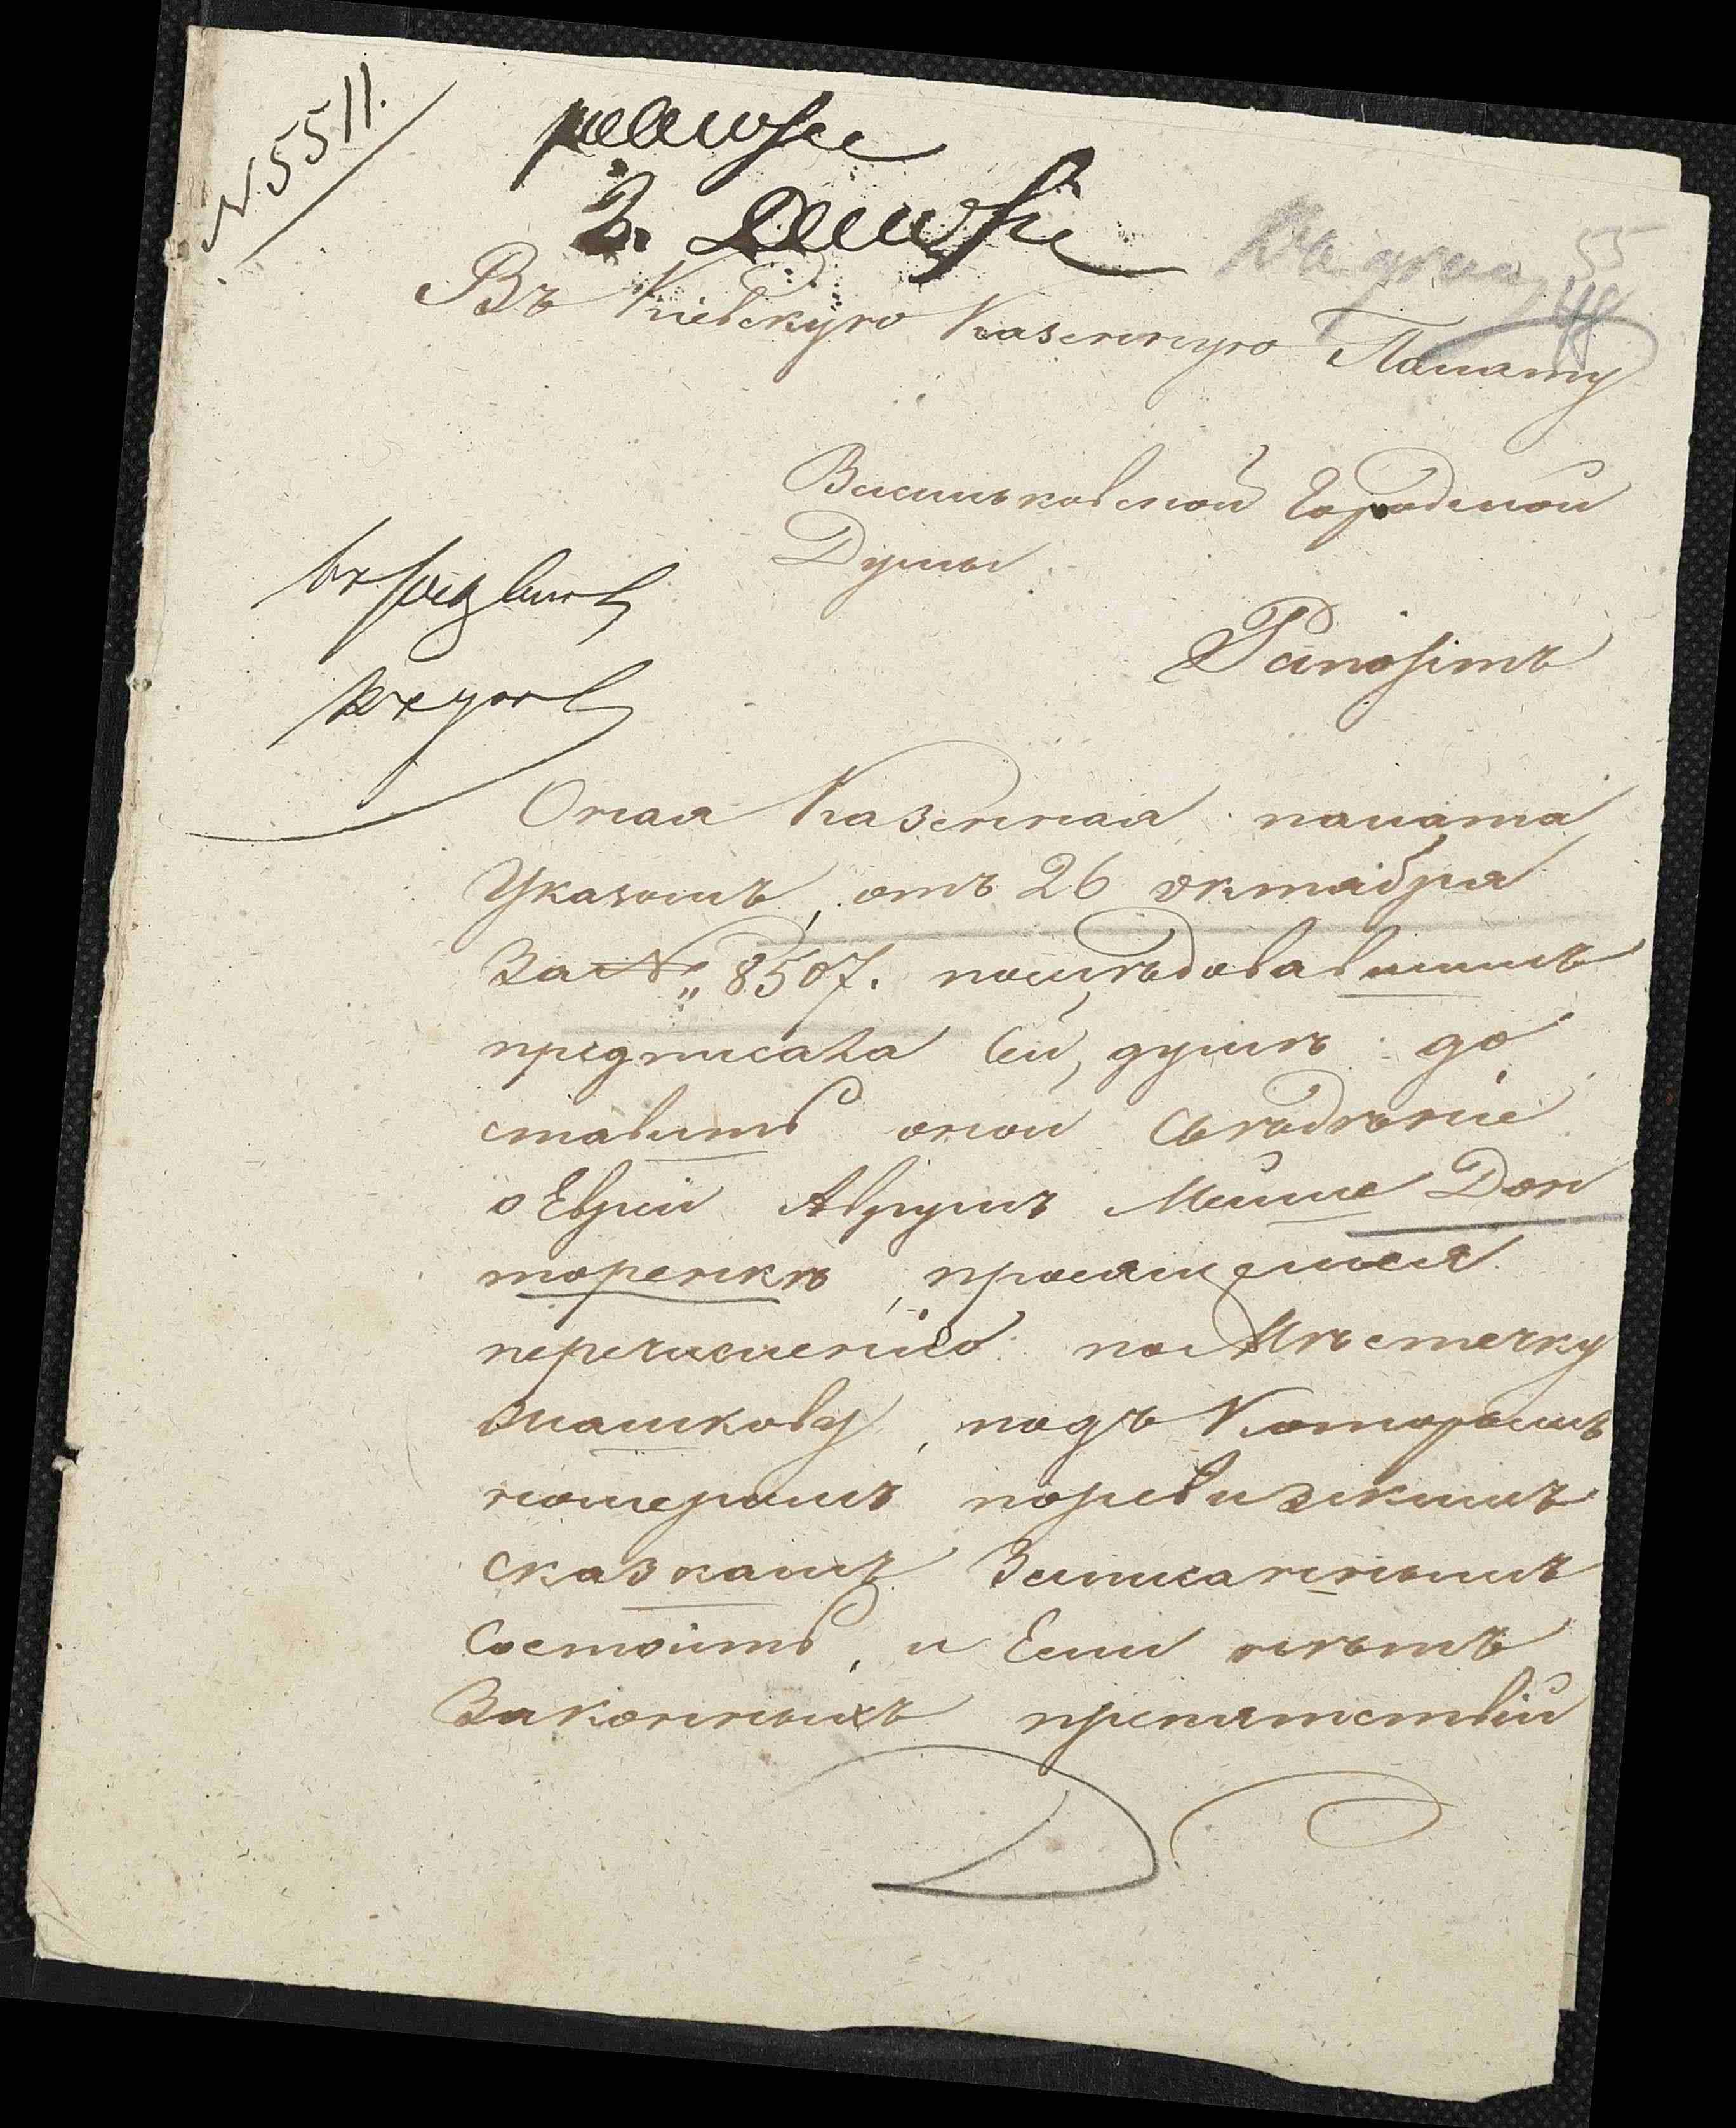 № 5511.
2. Декабр
55
48
Въ Кіевскую Казенную Палату
Васильковской Городской
Думы
Рапортъ
Оная Казенная палата
Указомъ, отъ 26 октября
За № 8507. послѣдовавшимъ
предписала сей, думѣ до
ставить оной Свѣдѣніе
о Еврей Аврумъ Мошие Дон
торенкѣ, просящемся
перечисленію по Мѣстечку
Знашкову, подъ Которымъ
номеромъ поревизскимъ
сказкамъ Записаннымъ
Состоитъ, и Если нѣтъ
Законныхъ препятствій